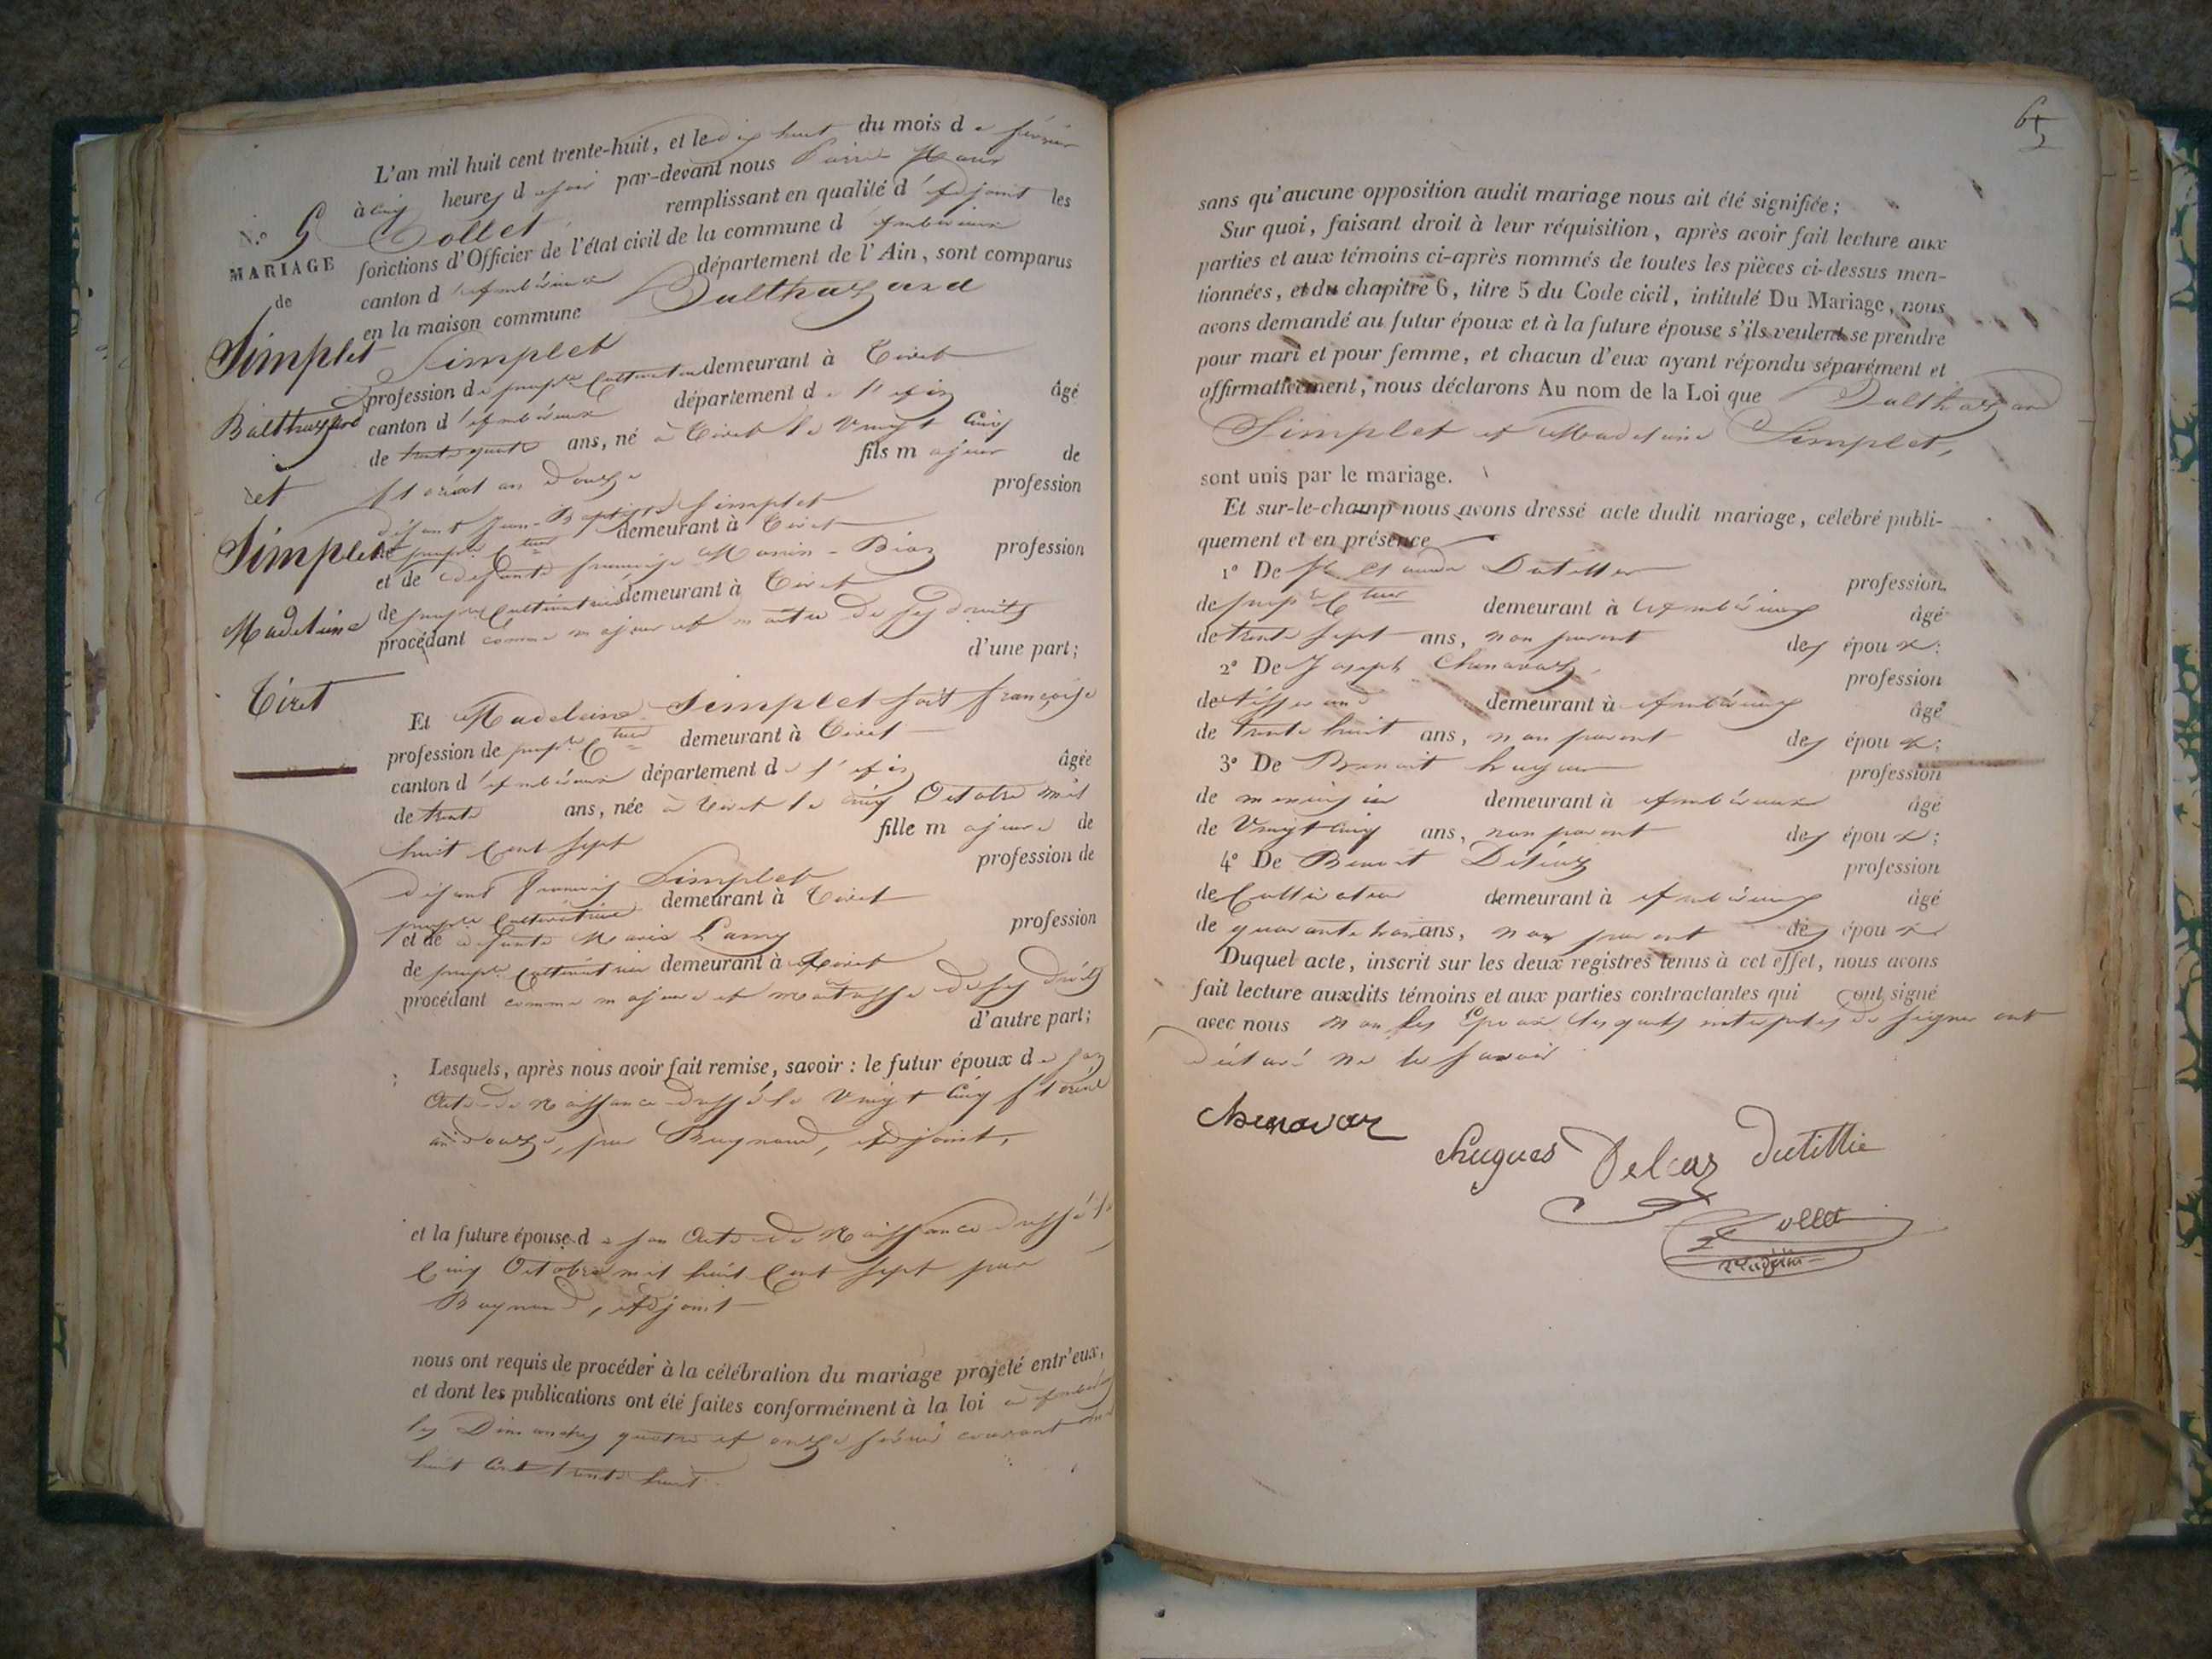 N.° 5
MARIAGE
de
Simplet
Balthazard
et
Simplet
Madeleine
Tiret
L'an mil huit cent trente-huit, et le dix huit du mois de février
à cinq heures du soir par-devant nous Pierre Marie
Collet remplissant en qualité d'adjoint les
fonctions d'Officier de l'état civil de la commune d'Ambérieux
canton d'Ambérieux département de l'Ain, sont comparus
en la maison commune Balthazard
Simplet
profession de prop.re Cultivateur demeurant à Tiret
canton d'Ambérieux département de l'Ain âgé
de trente quatre ans, né à Tiret le vingt cinq
floréal an douze fils majeur de
défunt Jean-Baptiste Simplet profession
de prop.re C.teur demeurant à Tiret
et de défunte françoise profession
de prop.re Cultivatrice demeurant à Tiret
procédant comme majeur et maître de ses droits
d'une part;
Et Madeleine Simplet soit françoise
profession de prop.re C.trice demeurant à Tiret
canton d'Ambérieux département de l'Ain âgée
de trente ans, née à Tiret le cinq Octobre mil
huit Cent sept fille majeure de
défunt François Simplet profession de
prop.re demeurant à Tiret
et de défunte Marie Lamy profession
de prop.re Cultivatrice demeurant à Tiret
procédant comme majeure et maîtresse de ses droits
d'autre part;
Lesquels, après nous avoir fait remise, savoir : le futur époux de son
Acte de Naissance dressé le vingt Cinq floréal
an douze, par Buynand, Adjoint,
et la future épouse de son Acte de Naissance dressé le
Cinq Octobre mil huit Cent sept par
Buynand, Adjoint
nous ont requis de procéder à la célébration du mariage projeté entr'eux,
et dont les publications ont été faites conformément à la loi à
les Dimanches quatre et onze février courant mil
huit Cent trente huit.
sans qu'aucune opposition audit mariage nous ait été signifiée;
Sur quoi, faisant droit à leur réquisition, après avoir fait lecture aux
parties et aux témoins ci-après nommés de toutes les pièces ci-dessus men-
tionnées, et du chapitre 6, titre 5 du Code civil, intitulé Du Mariage, nous
avons demandé au futur époux et à la future épouse s'ils veulent se prendre
pour mari et pour femme, et chacun d'eux ayant répondu séparément et
affirmativement, nous déclarons Au nom de la Loi que Balthazard
Simplet et Madeleine Simplet,
sont unis par le mariage.
Et sur-le-champ nous avons dressé acte dudit mariage, célébré publi-
quement et en présence
1° De Claude Dutillier profession
de prop.re C.teur demeurant à Ambérieux âgé
de trente sept ans, non parent des époux:
2° De Joseph Chenavaz, profession
de tisserand demeurant à Ambérieux âgé
de trente huit ans, non parent des époux;
3° De Benoit hugues profession
de menuisier demeurant à Ambérieux âgé
de Vingt cinq ans, non parent des époux;
4° De Benoit profession
de Cultivateur demeurant à Ambérieux âgé
de quarante trois ans, non parent des époux
Duquel acte, inscrit sur les deux registres tenus à cet effet, nous avons
fait lecture auxdits témoins et aux parties contractantes qui ont signé
avec nous non les Epoux lesquels interpelés de signer ont
déclaré ne le savoir
chenavaz
hugues Delcaz dutillie
Collet
adjoint